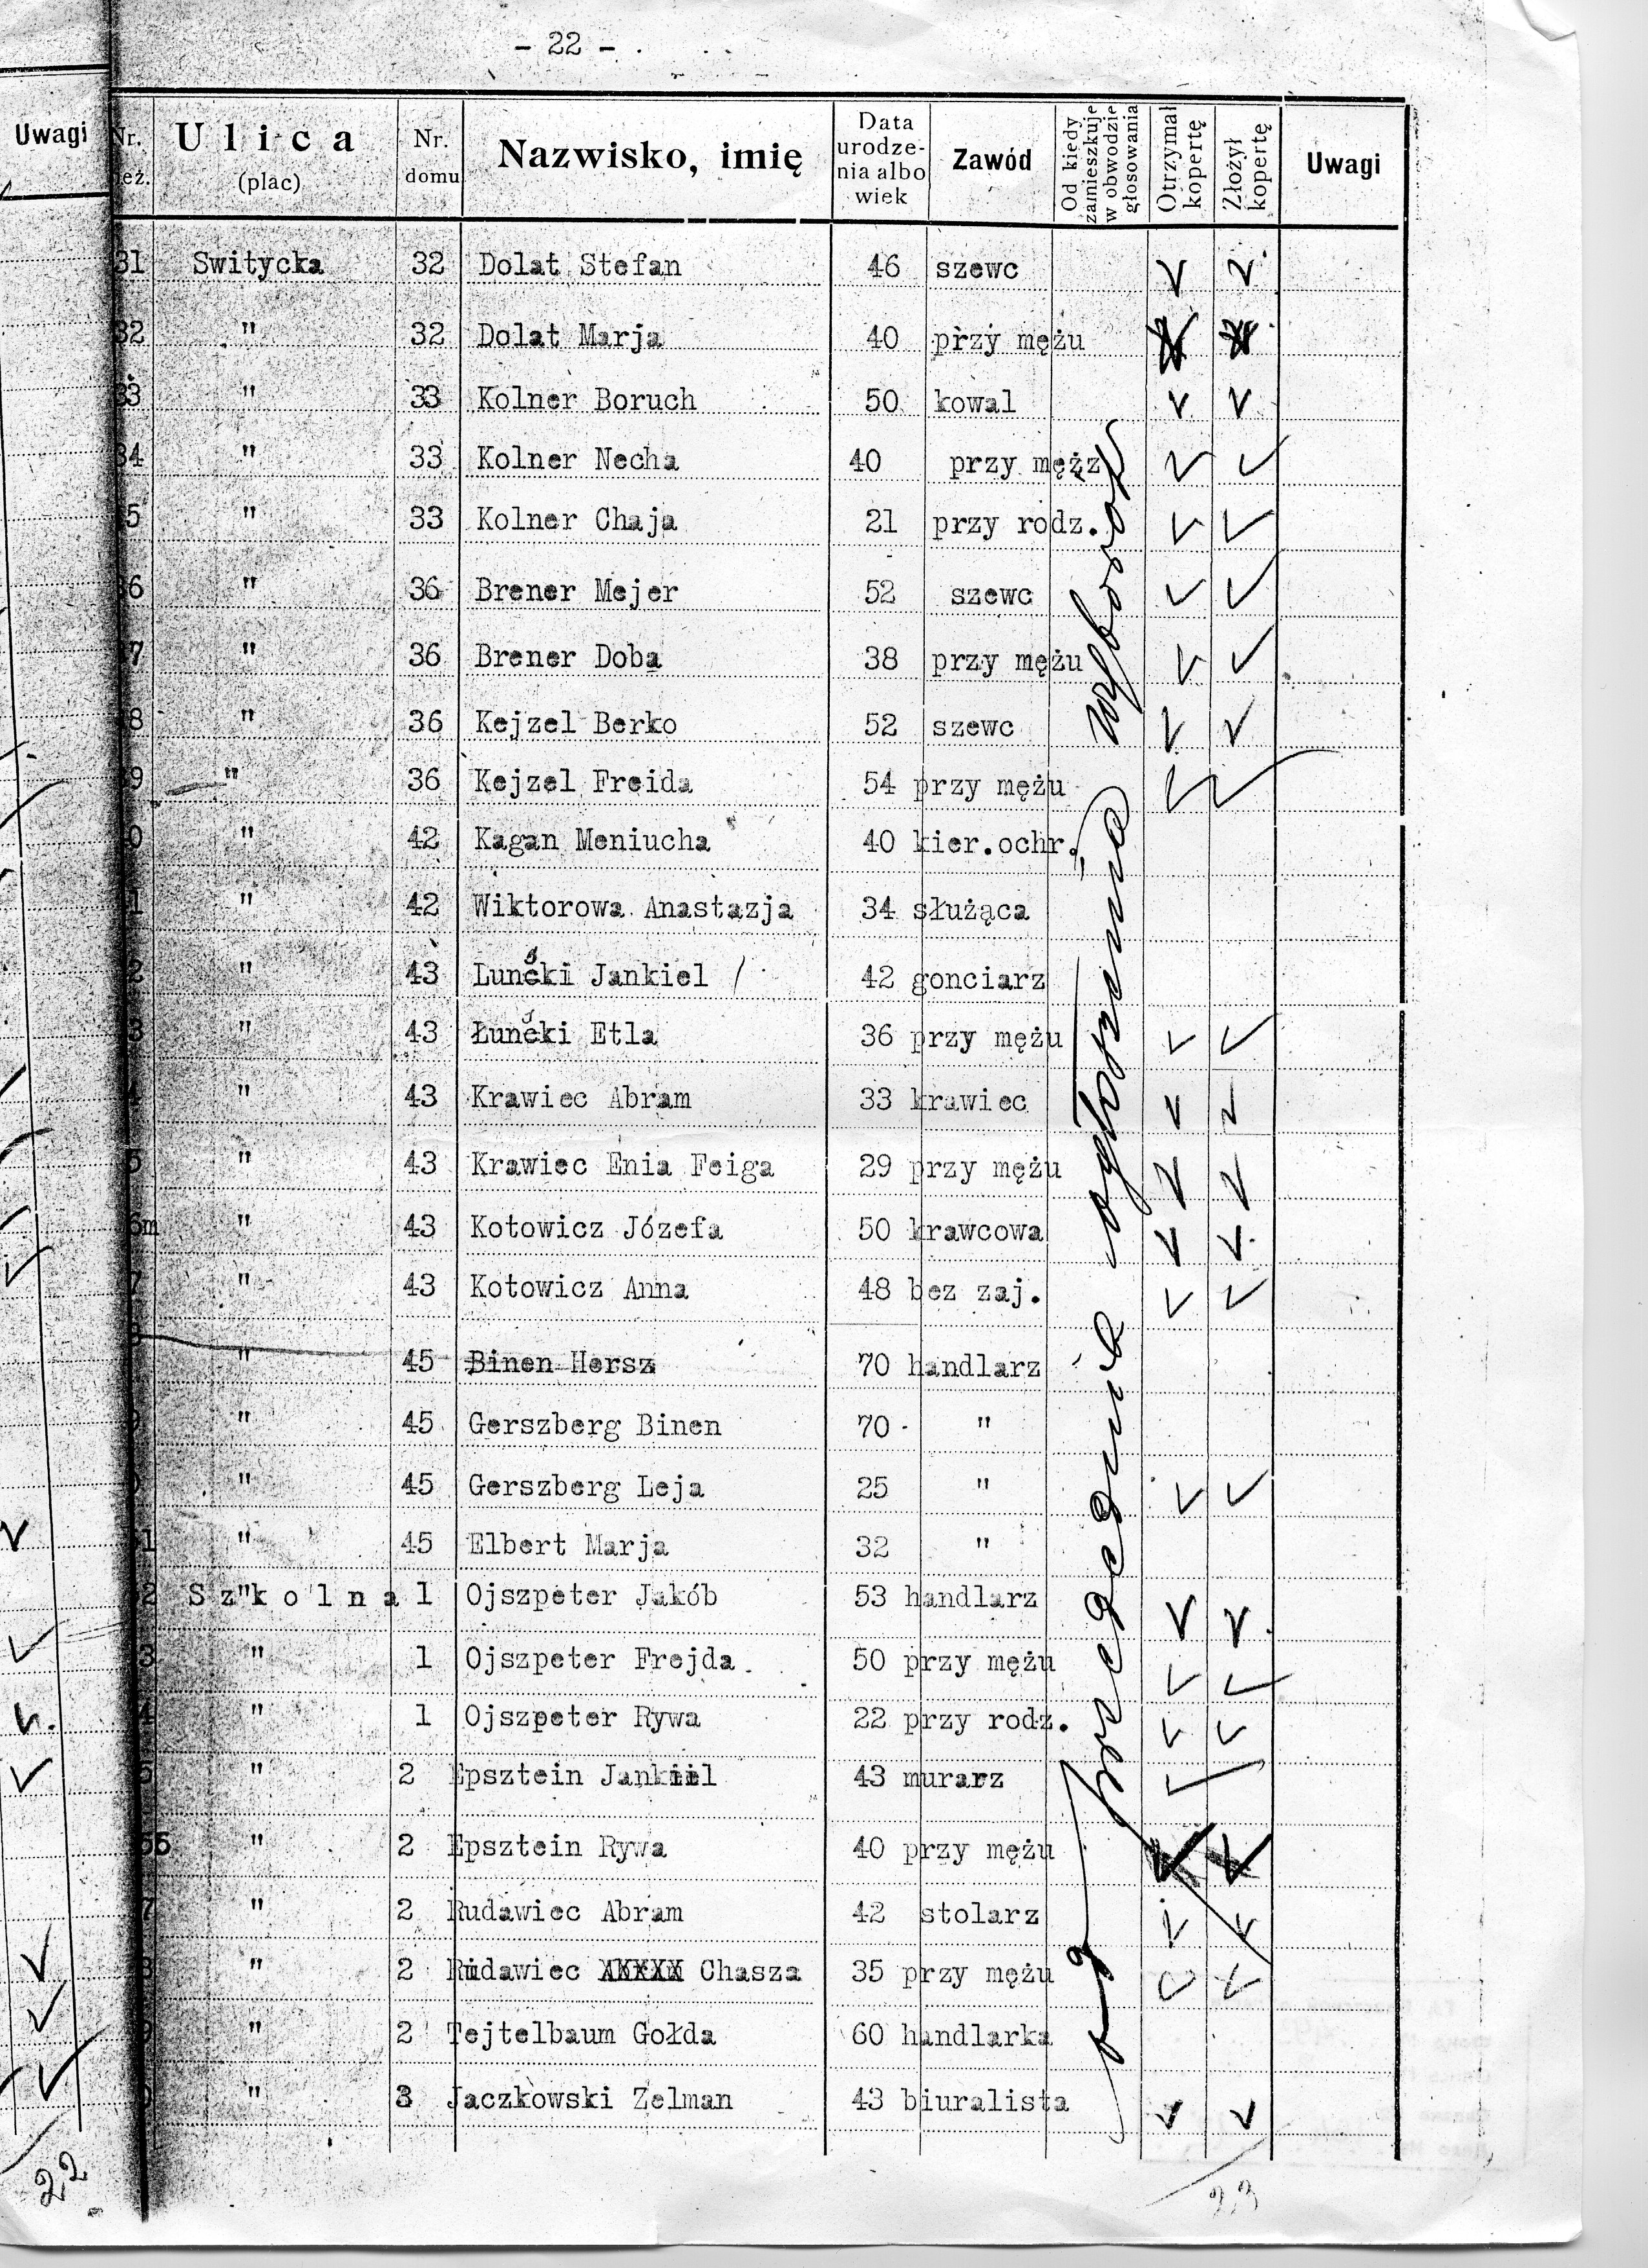 - 22 -
Uwagi
Nr. Ulica (plac) Nr. domu Nazwisko, imię Data urodzenia albo wiek Zawód Od kiedy zamieszkuje w obwodzie głosowania Otrzymał kopertę Złożył kopertę Uwagi
31 Switycka 32 Dolat Stefan 46 szewc V V
32 " 32 Dolat Marja 40 przy mężu
33 " 33 Kolner Boruch 50 kowal V V
34 " 33 Kolner Necha 40 przy mężz V V
5 " 33 Kolner Chaja 21 przy rodz. V V
6 " 36 Brener Mejer 52 szewc V V
7 " 36 Brener Doba 38 przy mężu V V
8 " 36 Kejzel Berko 52 szewc V V
9 " 36 Kejzel Freida 54 przy mężu V V
0 " 42 Kagan Meniucha 40 kier.ochr.
1 " 42 Wiktorowa Anastazja 34 służąca
2 " 43 Łuński Jankiel 42 gonciarz
3 " 43 Łuński Etla 36 przy mężu V V
4 " 43 Krawiec Abram 33 krawiec V V
5 " 43 Krawiec Enia Feiga 29 przy mężu V V
6m " 43 Kotowicz Józefa 50 krawcowa V V
7 " 43 Kotowicz Anna 48 bez zaj. V V
8 " 45 Binen Hersz 70 handlarz
9 " 45 Gerszberg Binen 70 "
" 45 Gerszberg Leja 25 " V V
1 " 45 Elbert Marja 32 "
2 Szkolna 1 Ojszpeter Jakób 53 handlarz V V
3 " 1 Ojszpeter Frejda 50 przy mężu V V
4 " 1 Ojszpeter Rywa 22 przy rodz. V V
5 " 2 Epsztein Jankiel 43 murarz V
55 " 2 Epsztein Rywa 40 przy mężu V V
7 " 2 Rudawiec Abram 42 stolarz V V
8 " 2 Rudawiec XXXXX Chasza 35 przy mężu V V
9 " 2 Tejtelbaum Gołda 60 handlarka
0 " 3 Jaczkowski Zelman 43 biuralista V V
przededniu ogłoszenia wyborów
22
23